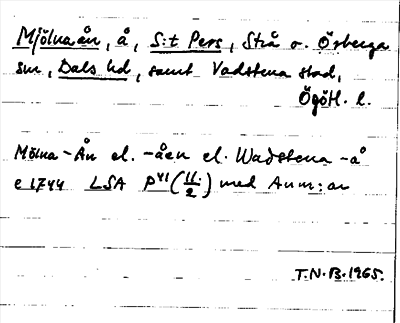 Mjölnaån, å, S:t Pers, Strå o. Örberga
snr, Dals hd, samt Vadstena stad,
Ögötl. l.
Mölna-Ån el. -åen el. Wadstena -å
e 1744 LSA P41 (11:/2) med Anm:ar
T.N.B. 1965.